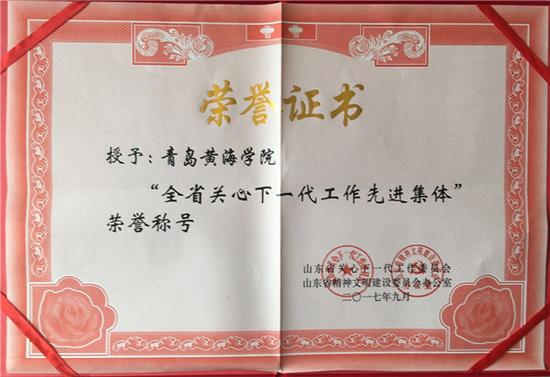 荣誉证书
授予：青岛黄海学院
“全省关心下一代工作先进集体”
荣誉称号
山东省关心下一代工作委员会
山东省精神文明建设委员会办公室
二〇一七年九月